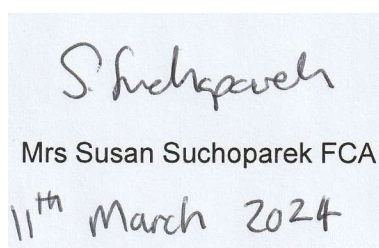 S. Suchoparek
Mrs Susan Suchoparek FCA
11th March 2024